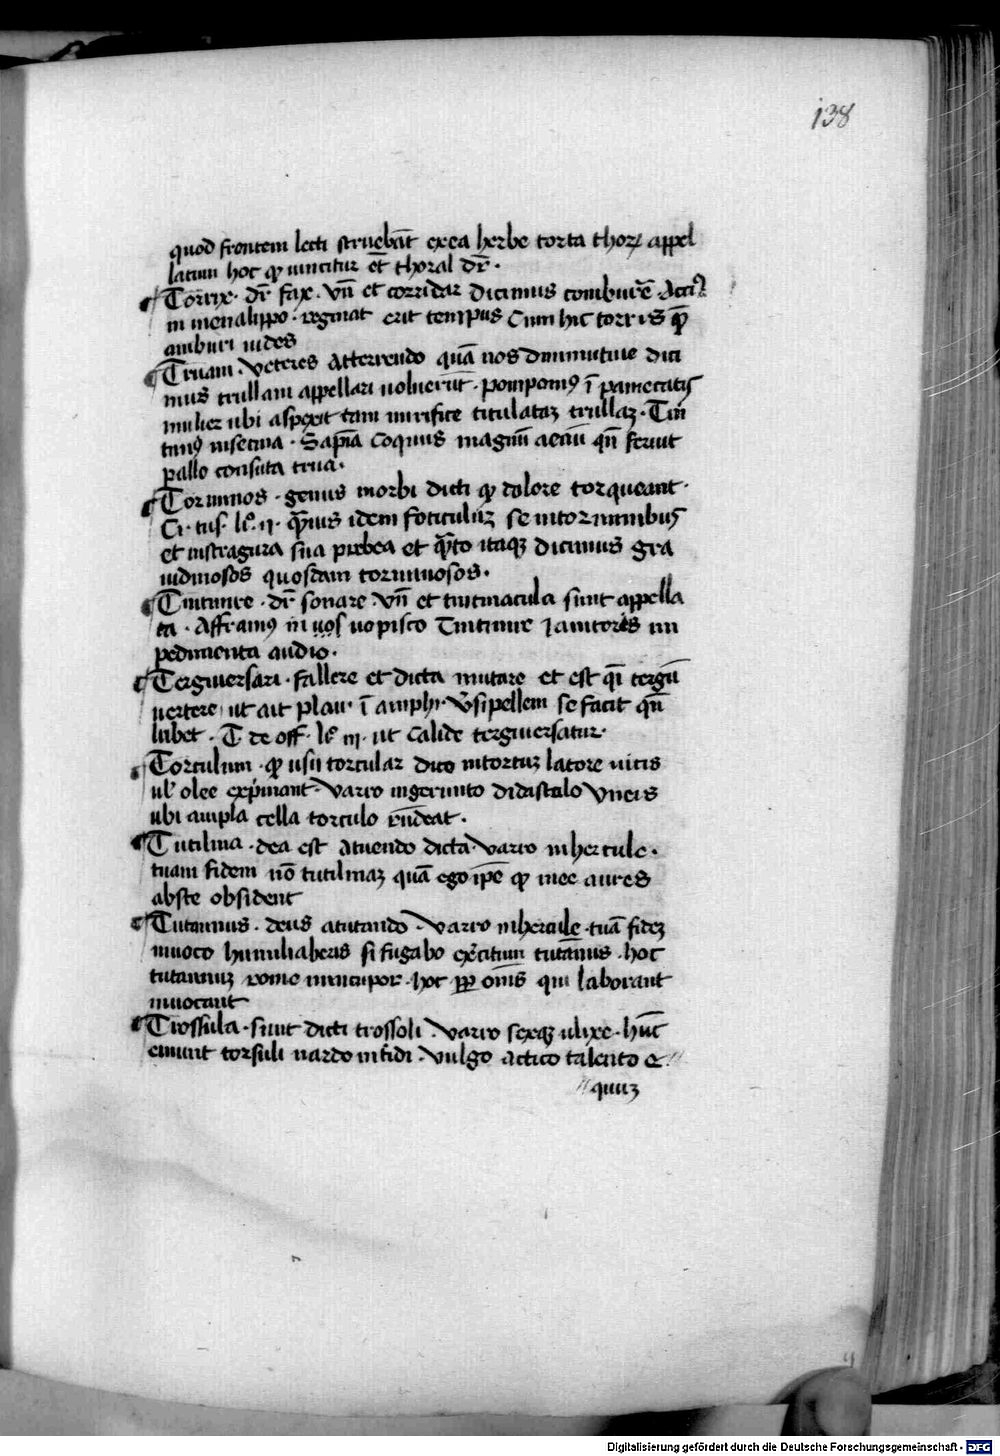 138
quod frontem lecti struebāt exea herbe torta thorꝝ appel
latum hoc qꝫ iungitur et̄ thoral dr̄ ·
Torrix · dr̄ fax · vn̄ et corridar dicimus comburē̄ · Acci9
in menalippo · reginat erit tempus cum hic torris qꝫ
amburi uides
Truam · veteres atterrendo quā nos diminutiue dici
mus trullam appellari uoluerūt · pomponi9 ī pannecatis
mulier ubi aspexit tam mirifice titulataꝫ trullaꝫ · Titi
tini9 insetina · Sap̄ia coquus magnū aenū qn̄ feruit
pallo confuta trua ·
Torminos · genus morbi dicti qꝫ dolore torqueant ·
Ci · tus · li° · ii · qꝫuis idem foticulūꝫ se intorminibus
et instragura sua prebea et qꝫto itaqꝫ dicimus gra
uidinosos quosdam torminosos ·
Tintinire · dr̄ sonare · vn̄ et tintinacula sunt appella
ta · Affrani9 in uos uopisco Tintinire ianitoris im
pedimenta audio ·
Tergiuersari · fallere et dicta mutare et est qī tergū
uertere ut ait plau · ī amphi · vsipellem se facit qn̄
lubet · T de off · li° iii · ut calide tergiuersatur ·
Torculum · qꝫ usu torcular dico intortuꝫ latore uitis
ul' olee exp̄mant · varro ingerunto didascalo vneis
ubi ampla cella torculo rn̄deat ·
Tutilina · dea est atuendo dicta · varro in hercule ·
tuam fidem nō tutilinaꝫ quā ego ip̄e qꝫ mee aures
abste obsident
Tutannus · deus atutando · varro in hercule · tuā fideꝫ
inuoco humiliaberis si fugabo ex̄citum tutānus · hoc
tutannuꝫ rome nuncupor · hoc ꝓp om̄is qui laborant
inuocant
Trossula · sunt dicti trossoli · varro sexqꝫ ulixe · hūc
emunt torsuli nardo nitidi vulgo actico talento e
quuꝫ
Digitalisierung gefördert durch die Deutsche Forschungsgemeinschaft - DFG